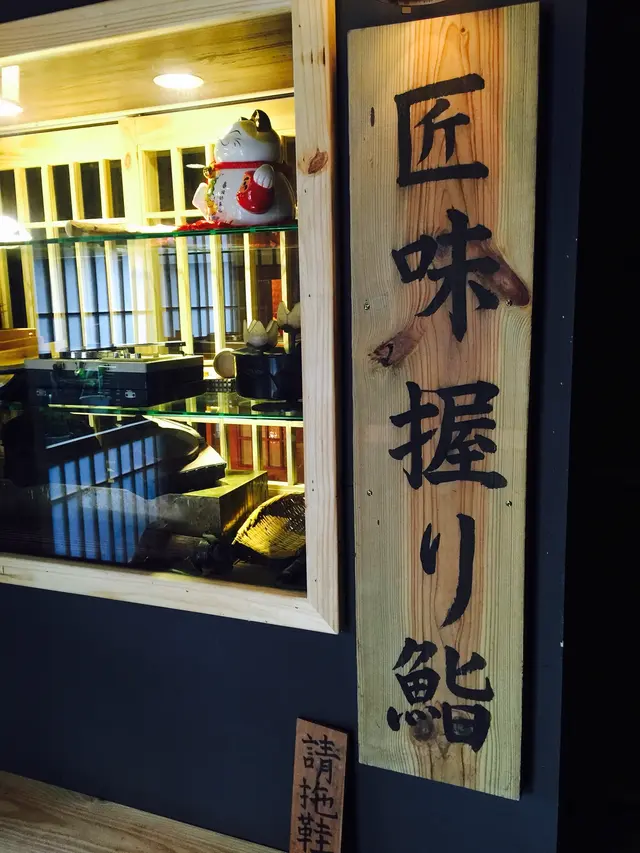 匠味握り鮨
請拖鞋